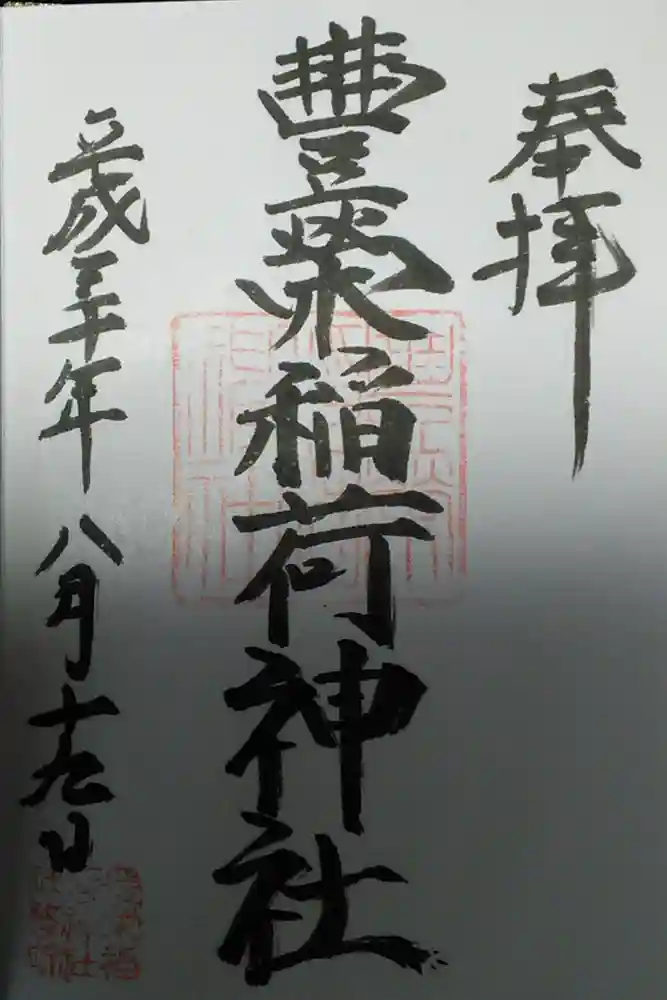 奉拝
豐榮稲荷神社
平成三十年 八月十九日